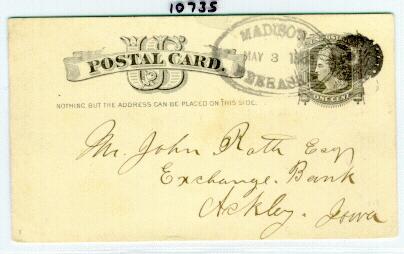 10735
US
POSTAL CARD.
NOTHING BUT THE ADDRESS CAN BE PLACED ON THIS SIDE.
MADISON
MAY 3
ONE CENT
Mr. John Rath Esq
Exchange. Bank
Ackley. Iowa